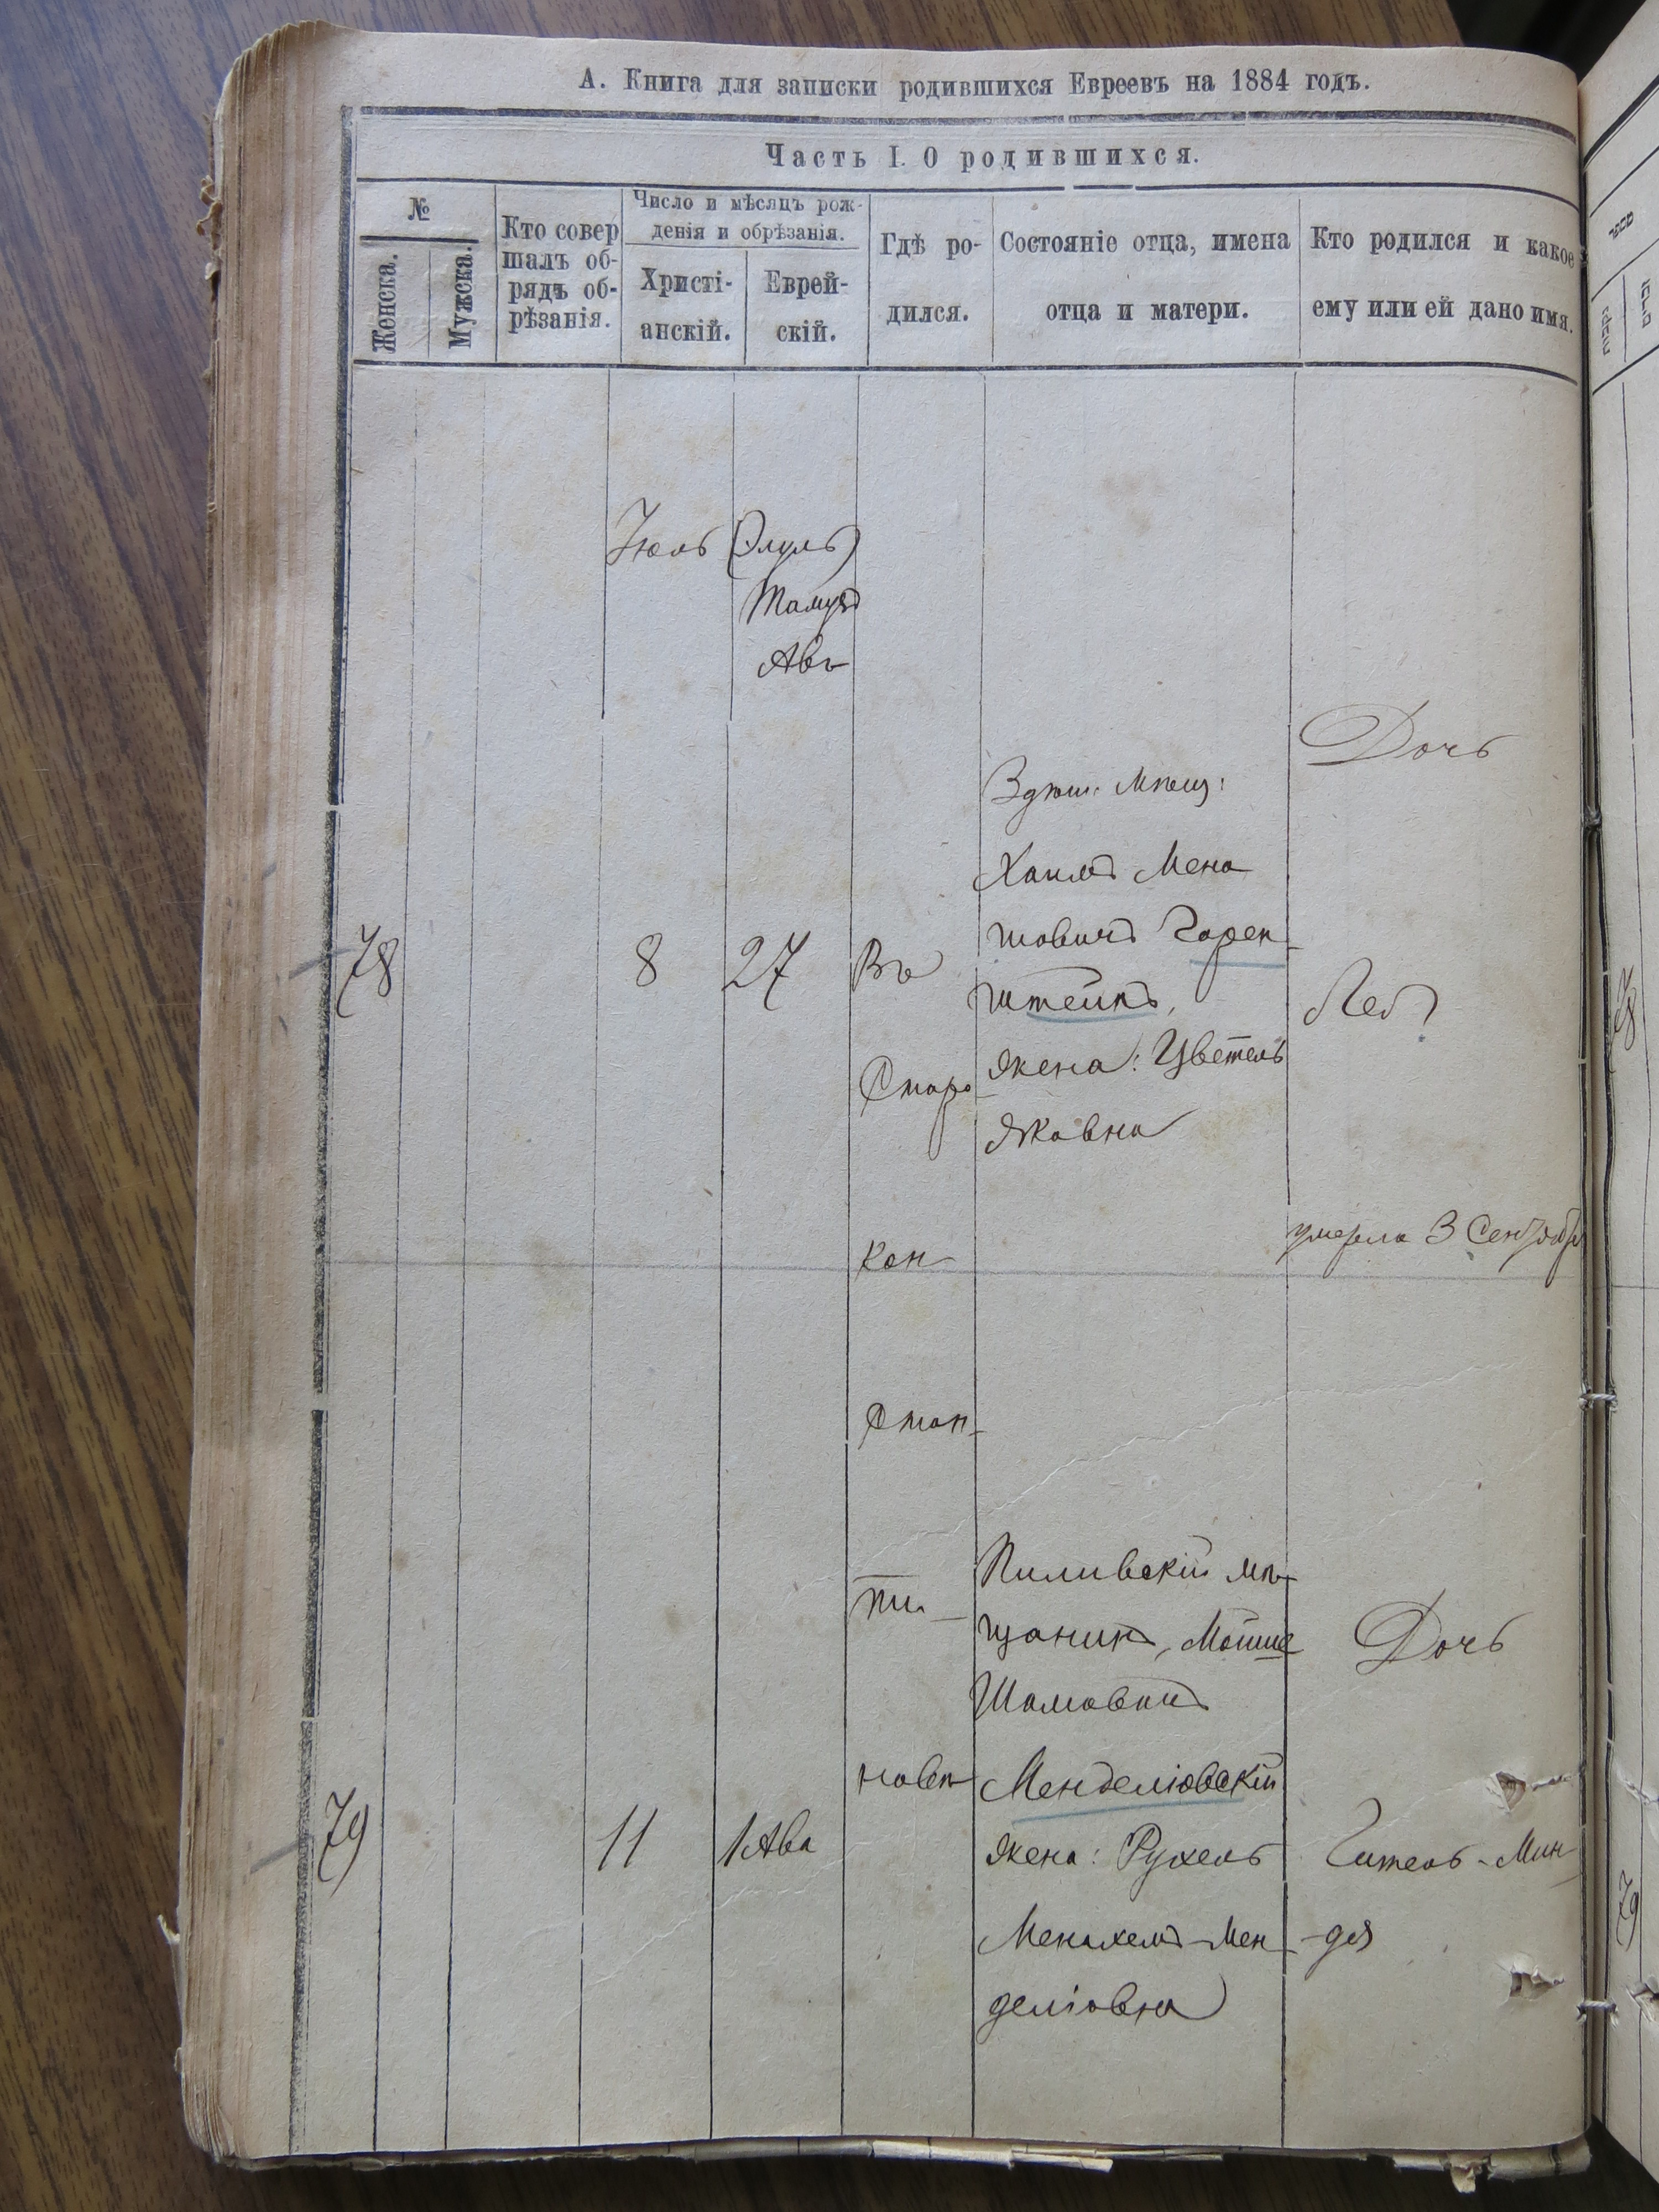 А. Книга для записки родившихся Евреевъ на 1884 годъ.
Часть I. О родившихся.
№
Женска.
Мужска.
Кто совер
шалъ об-
рядъ об-
рѣзанія.
Число и мѣсяцъ рож-
денія и обрѣзанія.
Христі-
анскій.
Еврей-
скій.
Гдѣ ро-
дился.
Состояніе отца, имена
отца и матери.
Кто родился и какое
ему или ей дано имя.
Іюль (Элуль)
Тамузъ
Авъ
78
8
27
Въ
Старо
кон
стан
ти
новѣ
Мѣщ:
Хаимъ Мена
шовичъ Горен
штейнъ,
жена: Цветель
Яковна
Дочь
Лея
умерла 3 Сентября
79
11
1 Ава
Пиливскій мѣ
щанинъ, Мошие
Шамовичъ
Менделіовскій
жена: Рухель
Менахемъ-Мен
деліовна
Дочь
Гитель-Мин
-дя
78
79